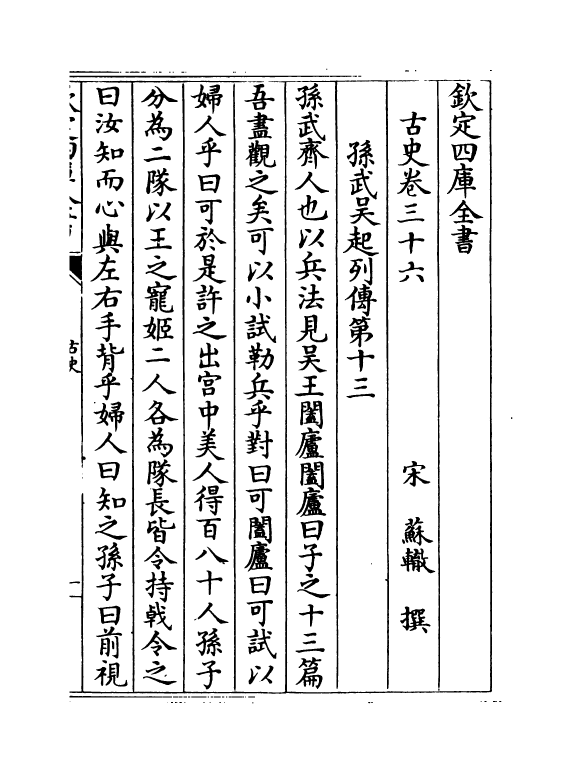 欽定四庫全書
古史卷三十六　宋　蘇轍　撰
孫武吴起列傳第十三
孫武齊人也以兵法見吴王闔廬闔廬曰子之十三篇
吾盡觀之矣可以小試勒兵乎對曰可闔廬曰可試以
婦人乎曰可於是許之出宫中美人得百八十人孫子
分為二隊以王之寵姬二人各為隊長皆令持戟令之
曰汝知而心與左右手背乎婦人曰知之孫子曰前視
古史